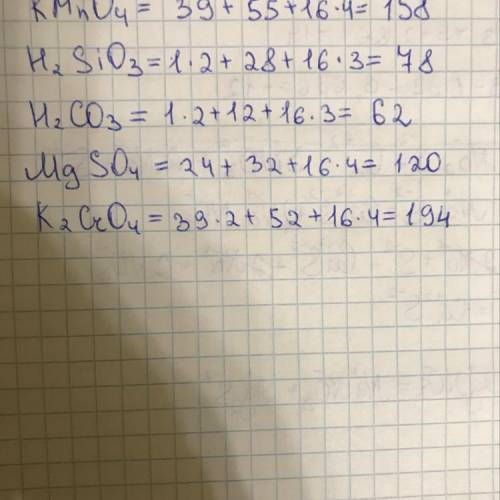 KMnO4 = 39 + 55 + 16·4 = 158
H2SiO3 = 1·2 + 28 + 16·3 = 78
H2CO3 = 1·2 + 12 + 16·3 = 62
MgSO4 = 24 + 32 + 16·4 = 120
K2CrO4 = 39·2 + 52 + 16·4 = 194